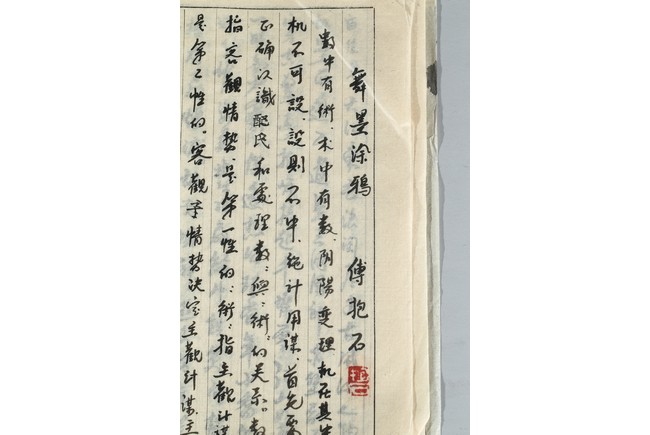 舞墨涂鸦 傅抱石
数中有術、术中有数、阴陽燮理、机在其
机不可設、設則不中、绝计用謀、首先要
正确认識 和處理数:與:術:的关系。数
指客觀情势、是第一性的:術:指主觀计謀
是第二性的。客觀 情势决定主觀计謀主